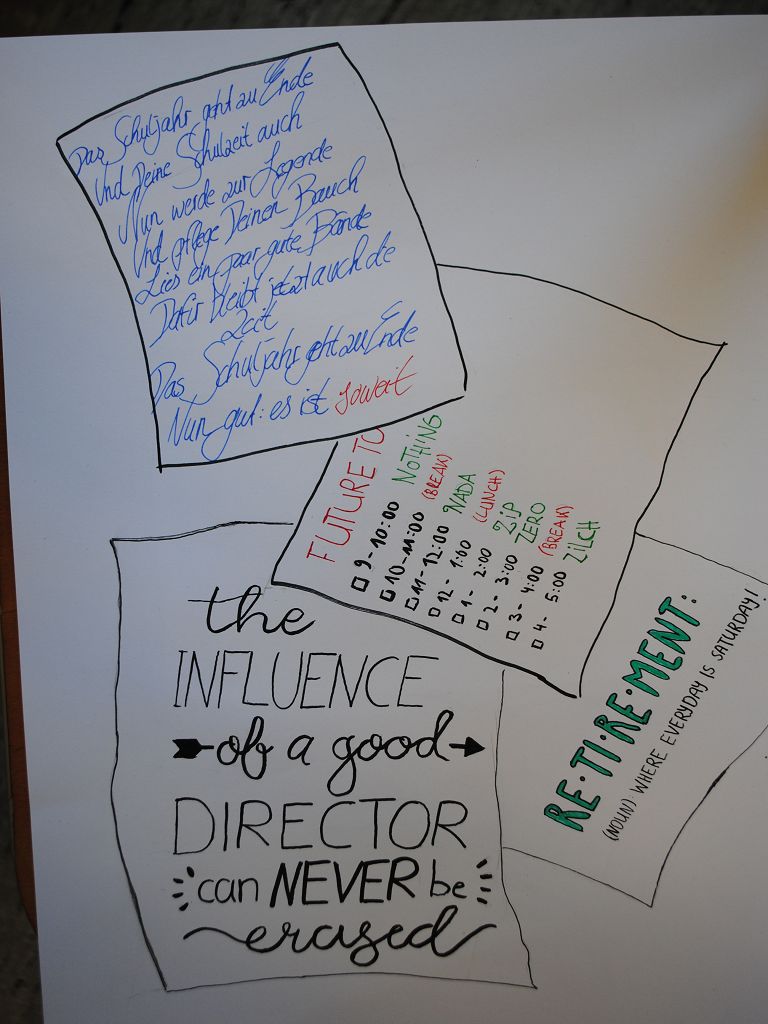 Das Schuljahr geht zu Ende
Und Deine Schulzeit auch
Nun werde zur Legende
Und pflege Deinen Bauch
Lies ein paar gute Bände
Dafür bleibt jetzt auch die
Zeit
Das Schuljahr geht zu Ende
Nun gut: es ist soweit
FUTURE TO
9-10:00 NOTHING
10-11:00 (BREAK)
11-12:00 NADA
12- 1:00 (LUNCH)
1- 2:00 ZIP
2- 3:00 ZERO
3- 4:00 (BREAK)
4- 5:00 ZILCH
the
INFLUENCE
of a good
DIRECTOR
can NEVER be
erased
RE·TI·RE·MENT:
(NOUN) WHERE EVERYDAY IS SATURDAY!